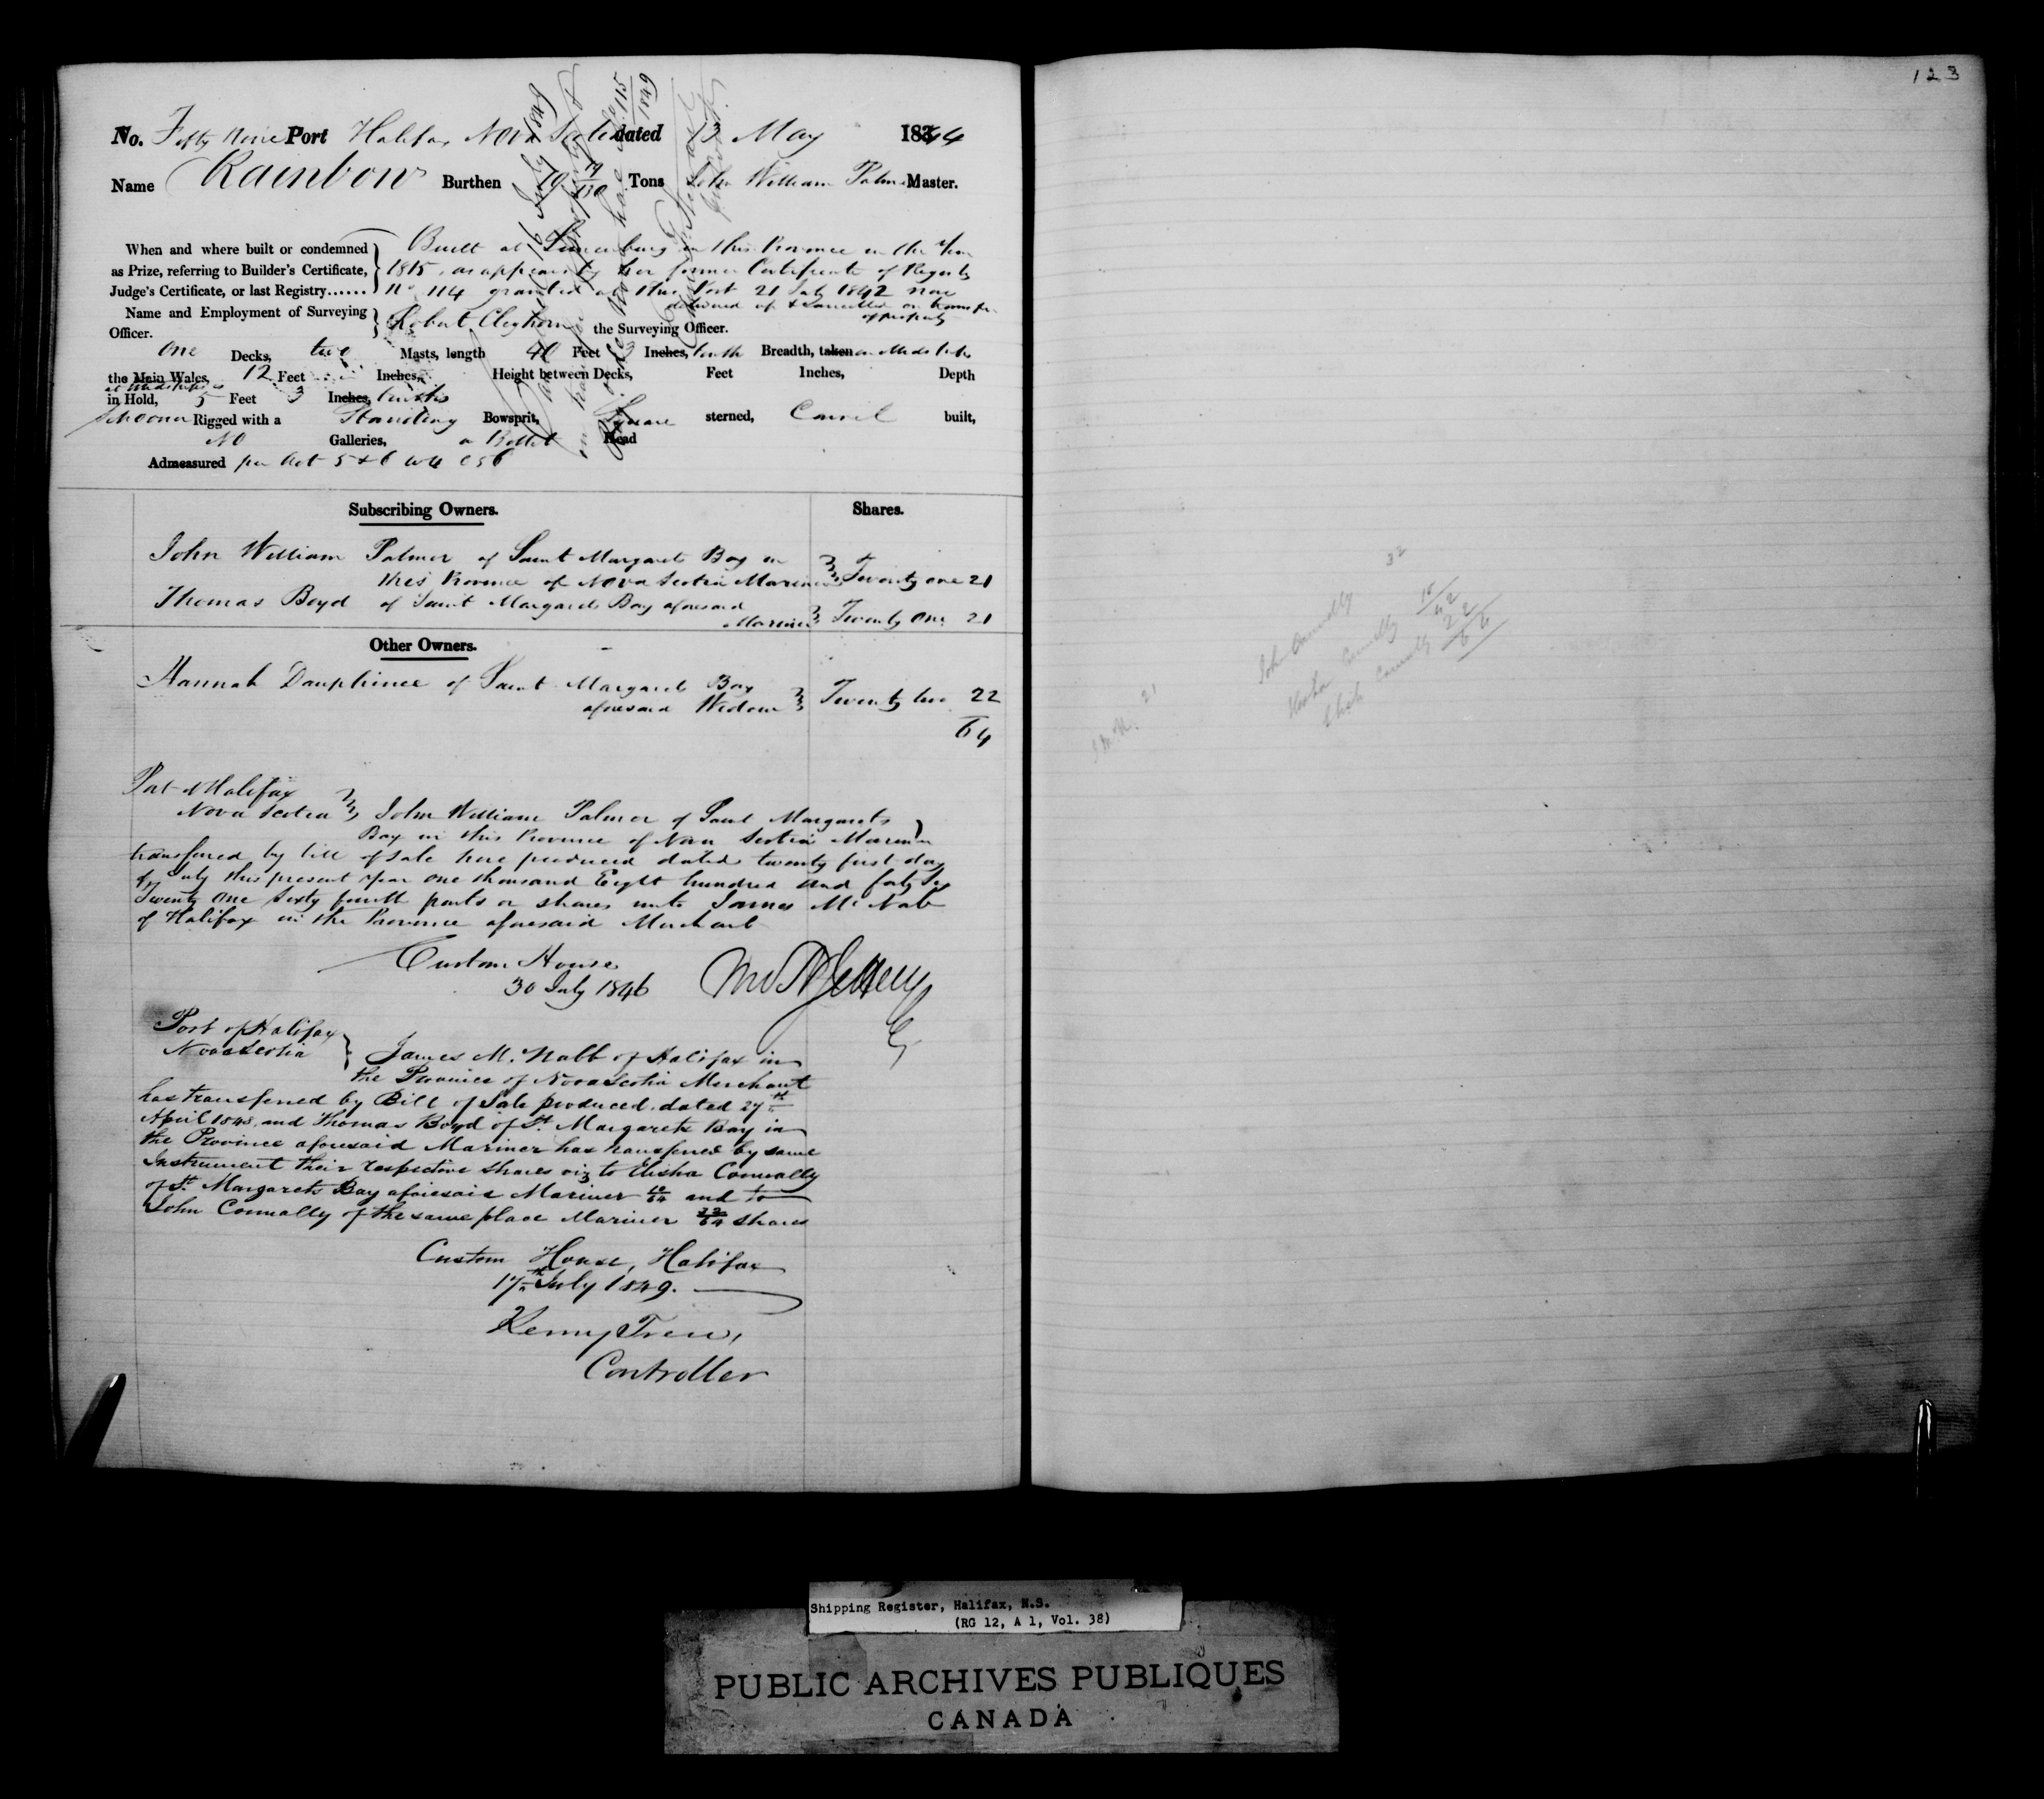 123
No. Fifty Nine Port Halifax Nova Scotia dated 13 May 1844
Name Rainbow Burthen 19/130 Tons John William Palmer Master.
When and where built or condemned as Prize, referring to Builder's Certificate, Judge's Certificate, or last Registry......
Built at Lunenburg in this Province in the Year
1815, as appears by her former Certificate of Registry
No 114 granted at this Port 21 July 1842 now
delivered up & Cancelled on transfer
of property
Name and Employment of Surveying Officer. Robert Cleghorn the Surveying Officer.
One Decks, two Masts, length 40 Feet 3 Inches, tenth Breadth, taken in Midships
the Main Wales, 12 Feet Inches, Height between Decks, Feet Inches, Depth
at Midships is
in Hold, 5 Feet 3 Inches, tenths
Schooner Rigged with a Standing Bowsprit, Square sterned, Carvel built,
No Galleries, a Billet Head
Admeasured per Act 5 & 6 W4 C56
16 July 1849
115
1849
Subscribing Owners. Shares.
John William Palmer of Saint Margarets Bay in
this Province of Nova Scotia Mariner Twenty one 21
Thomas Boyd of Saint Margarets Bay aforesaid
Mariner Twenty One 21
Other Owners.
Hannah Dauphinee of Saint Margarets Bay
aforesaid Widow Twenty two 22
64
Port of Halifax
Nova Scotia John William Palmer of Saint Margarets
Bay in this Province of Nova Scotia Mariner
transferred by bill of Sale here produced dated twenty first day
of July this present Year One thousand Eight hundred and forty Six
Twenty One Sixty fourth parts or shares unto James Mc Nab
of Halifax in the Province aforesaid Merchant
Custom House
30 July 1846
Port of Halifax
Nova Scotia James McNabb of Halifax in
the Province of Nova Scotia Merchant
has transferred by Bill of Sale produced dated 27th
April 1848, and Thomas Boyd of St. Margarets Bay in
the Province aforesaid Mariner has transferred by same
Instrument their respective shares viz to Elisha Connally
of St. Margarets Bay aforesaid Mariner 10/64 and to
John Connally of the same place Mariner 32/64 shares
Custom House, Halifax
17th July 1849.
Controller
32
John Connally
Elisha Connally
22
21
Shipping Register, Halifax, N.S.
(RG 12, A 1, Vol. 38)
PUBLIC ARCHIVES PUBLIQUES
CANADA